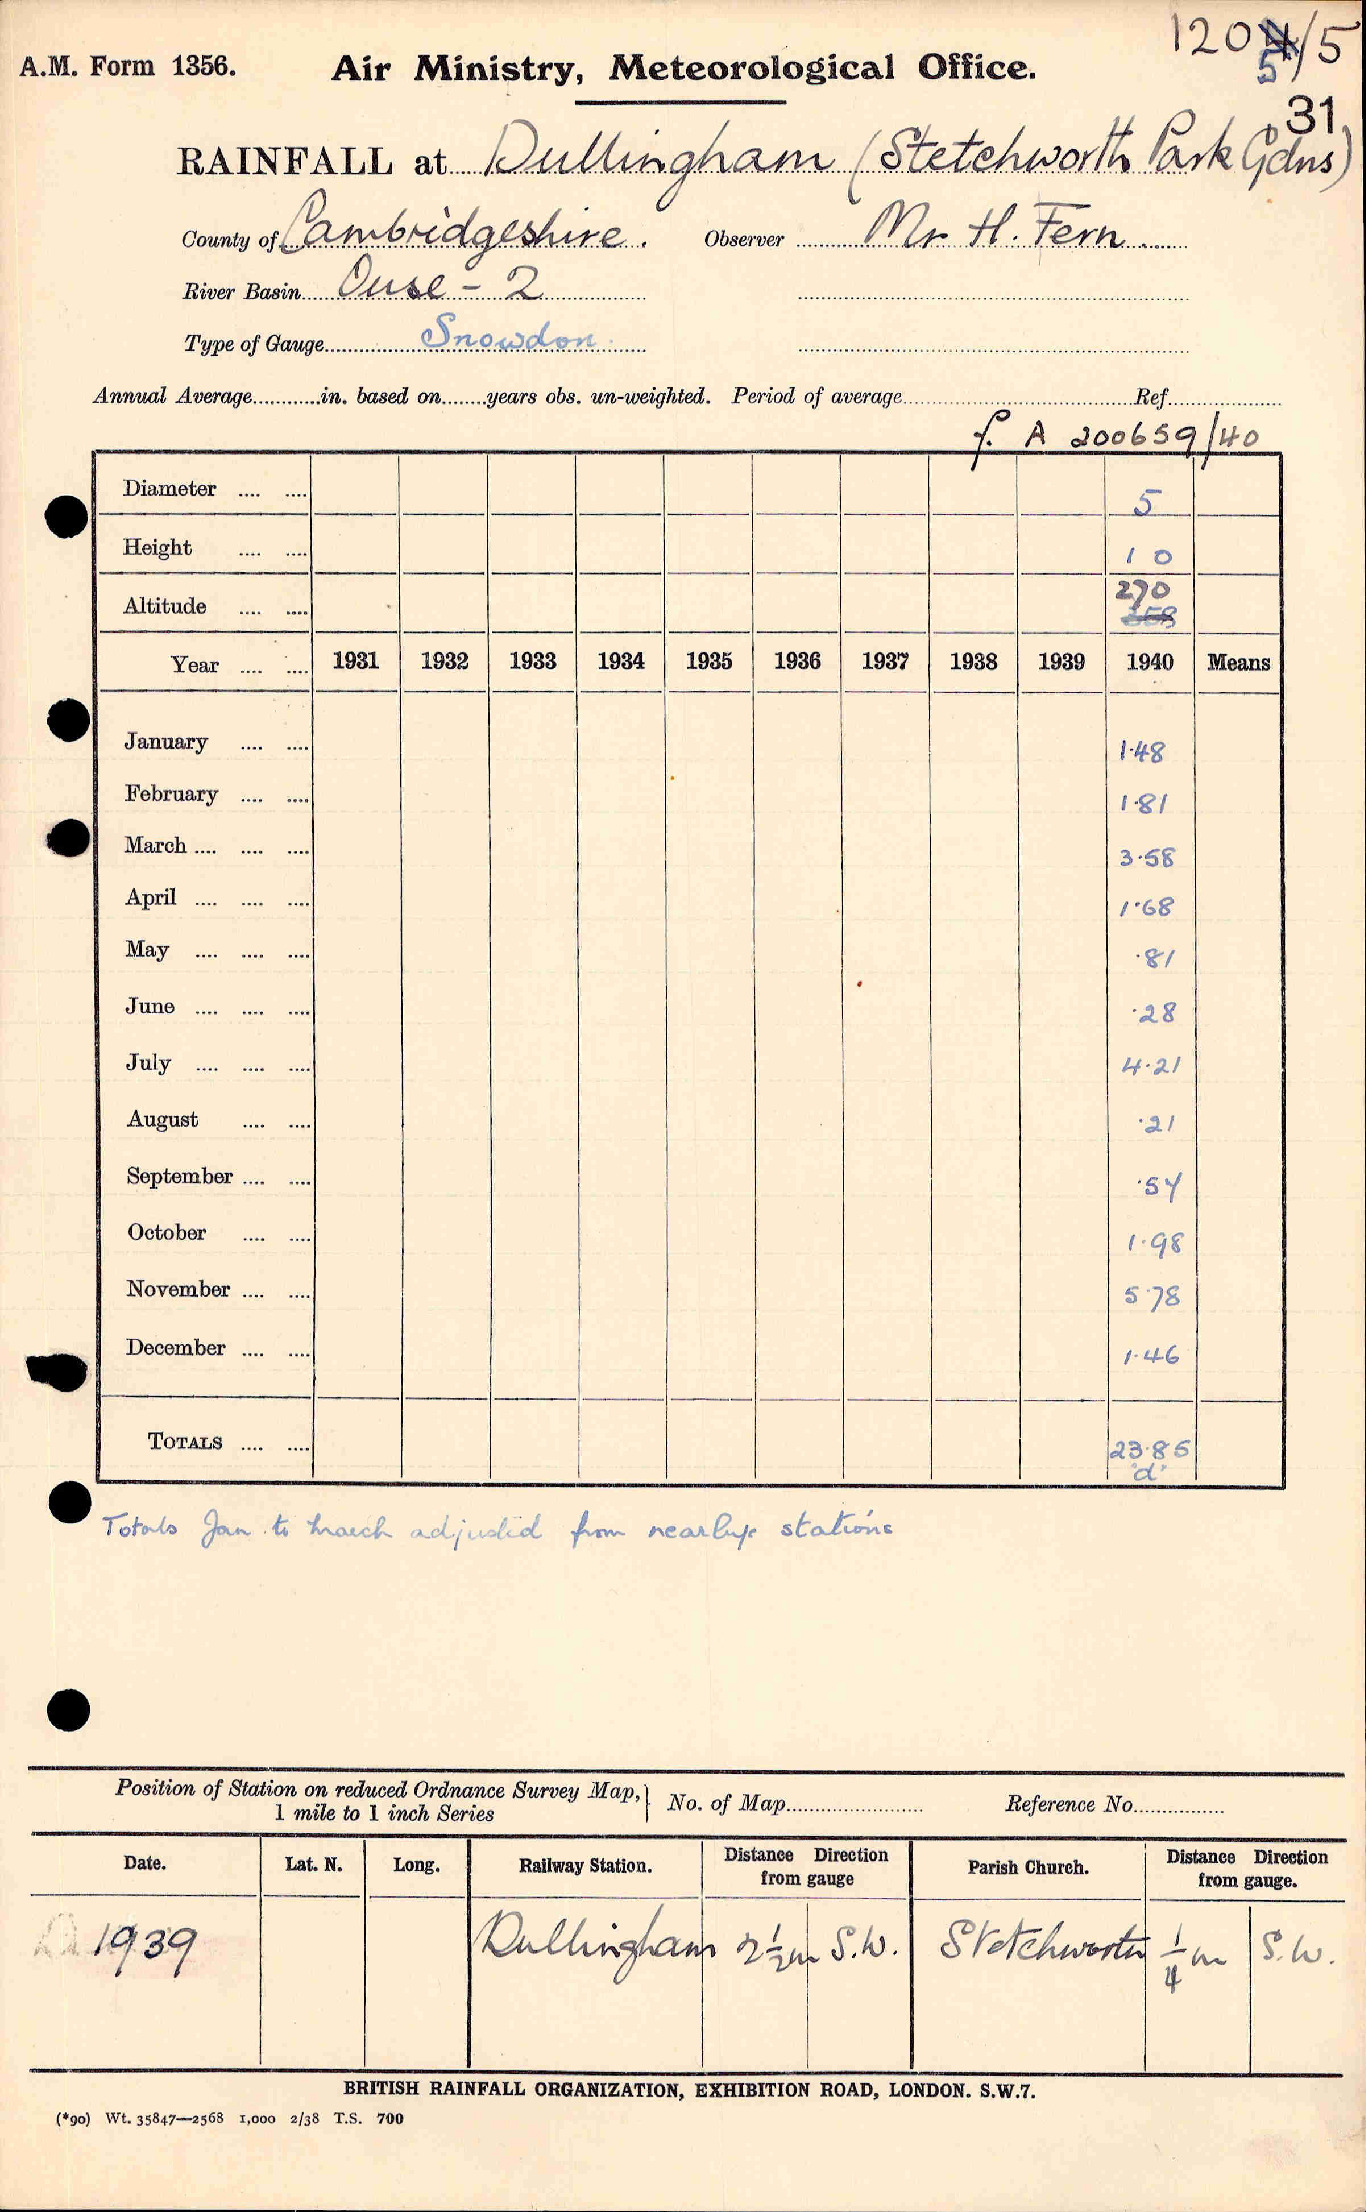 1204/5
5
A.M. Form 1356. Air Ministry, Meteorological Office.
31
RAINFALL at Dullingham (Stetchworth Park Gdns)
County of Cambridgeshire. Observer Mr H. Fern
River Basin Ouse - 2
Type of Gauge Snowdon
Annual Average............in. based on.......years obs. un-weighted. Period of average.................... Ref....................
f. A 200659/40
Diameter .... .... 5
Height .... .... 1 0
Altitude .... .... 270
358
Year .... .... 1931 1932 1933 1934 1935 1936 1937 1938 1939 1940 Means
January .... .... 1·48
February .... .... 1·81
March .... .... .... 3·58
April .... .... .... 1·68
May .... .... .... ·81
June .... .... .... ·28
July .... .... .... 4·21
August .... .... ·21
September .... .... ·54
October .... .... 1·98
November .... .... 5·78
December .... .... 1·46
TOTALS .... .... 23·85
"d"
Totals Jan. to March adjusted from nearby stations
Position of Station on reduced Ordnance Survey Map, 1 mile to 1 inch Series No. of Map........................ Reference No................
Date. Lat. N. Long. Railway Station. Distance Direction from gauge Parish Church. Distance Direction from gauge.
1939 Dullingham 2½m S.W. Stetchworth ¼m S.W.
BRITISH RAINFALL ORGANIZATION, EXHIBITION ROAD, LONDON. S.W.7.
(*90) Wt. 35847—2568 1,000 2/38 T.S. 700